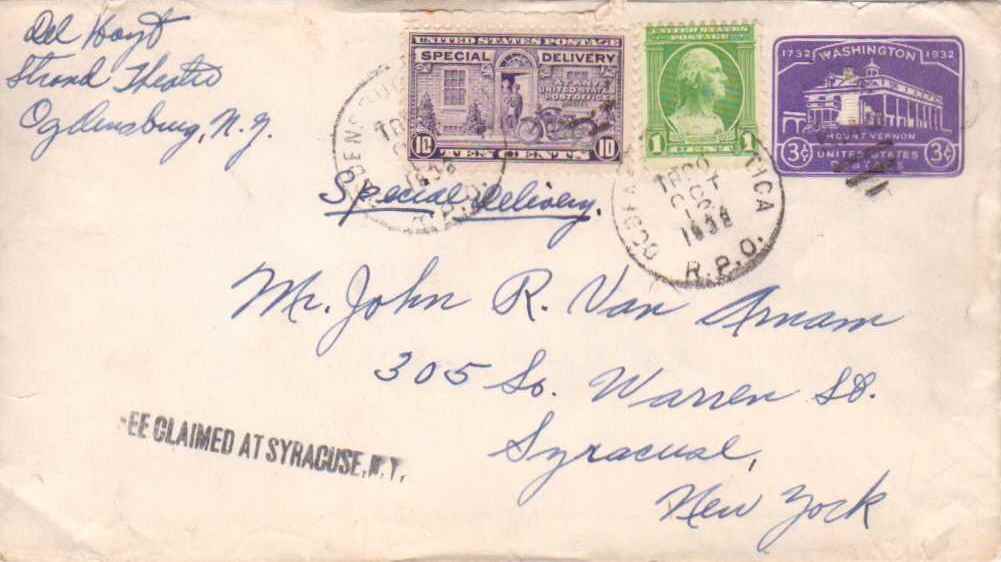 Del Hoyt
Strand Theatre
Ogdensburg, N.Y.
UNITED STATES POSTAGE
SPECIAL DELIVERY
AT ANY
UNITED STATES
POST OFFICE
10 TEN CENTS 10
UNITED STATES
POSTAGE
1 1
1732 WASHINGTON 1932
MOUNT VERNON
3¢ UNITED STATES 3¢
OCT
1932
R.P.O.
Special Delivery.
Mr. John R. Van Arnam
305 So. Warren St.
Syracuse,
New York
EE CLAIMED AT SYRACUSE, N.Y.